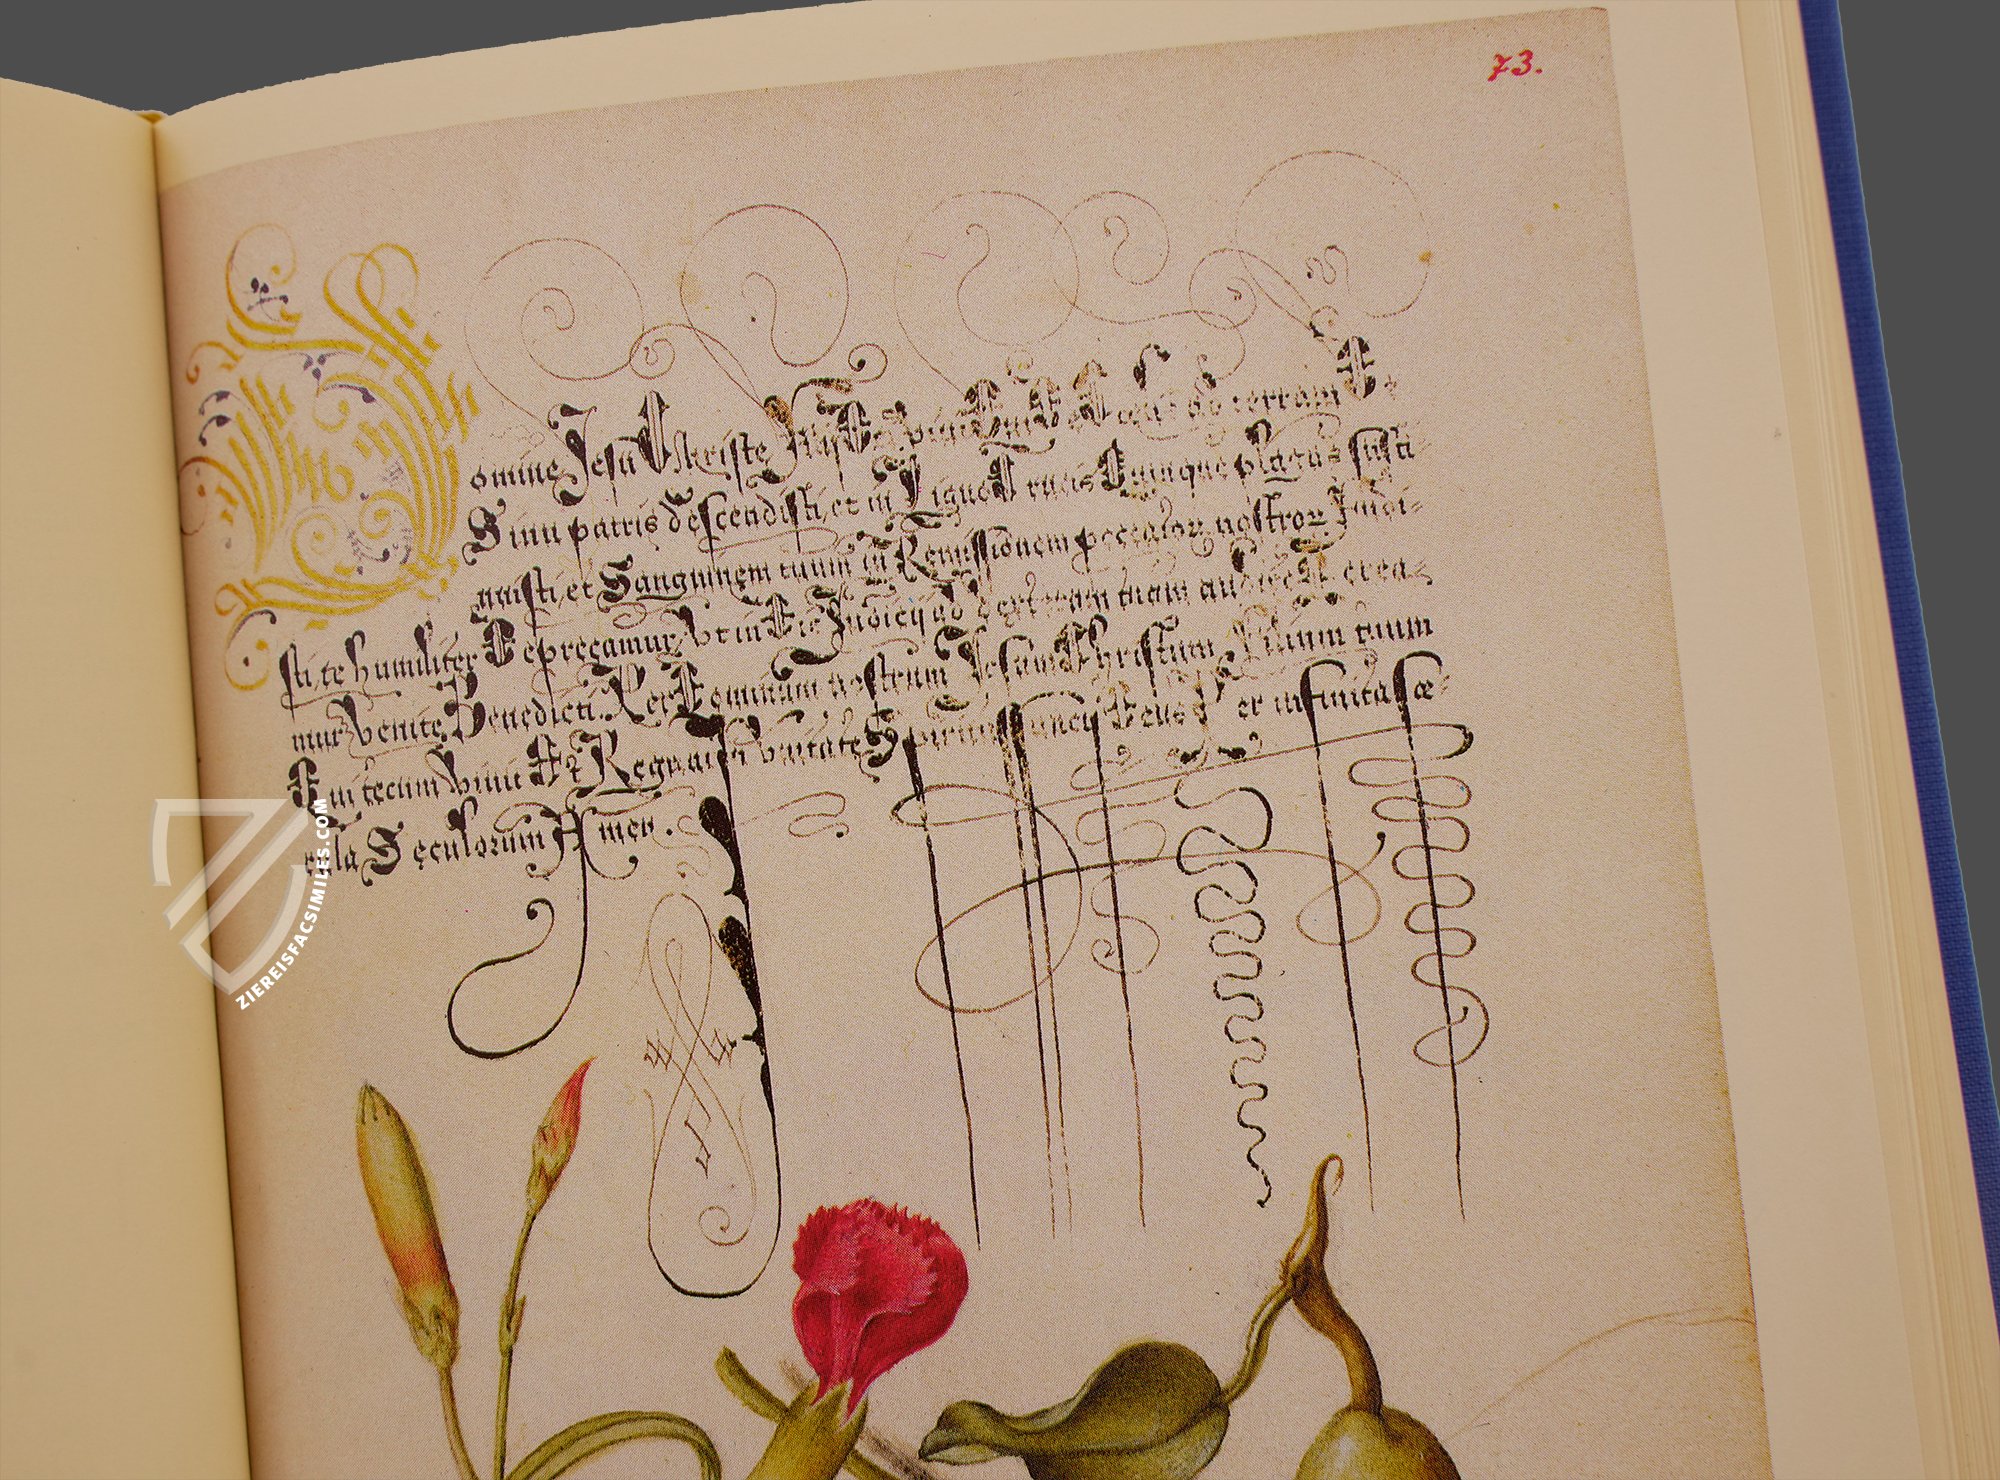 73.
Domine Jesu Christe Filij Dei Vivi Qui De Celis ad terram De
Sinu patris descendisti, et in Ligno Crucis Quinque plagas susti-
nuisti, et Sanguinem tuum in Remissionem peccator nostror Fudi-
sti, te humiliter Deprecamur, Vt in Die Judicij ad dexteram tuam audire Merea-
mur, Venite Benedicti. Per Dominum nostrum Jesum Christum Filium tuum
Qui tecum vivit Et Regnat in vnitate Spiritus sancti Deus Per infinita sæ-
cula Sęculorum Amen.
ZIEREISFACSIMILES.COM